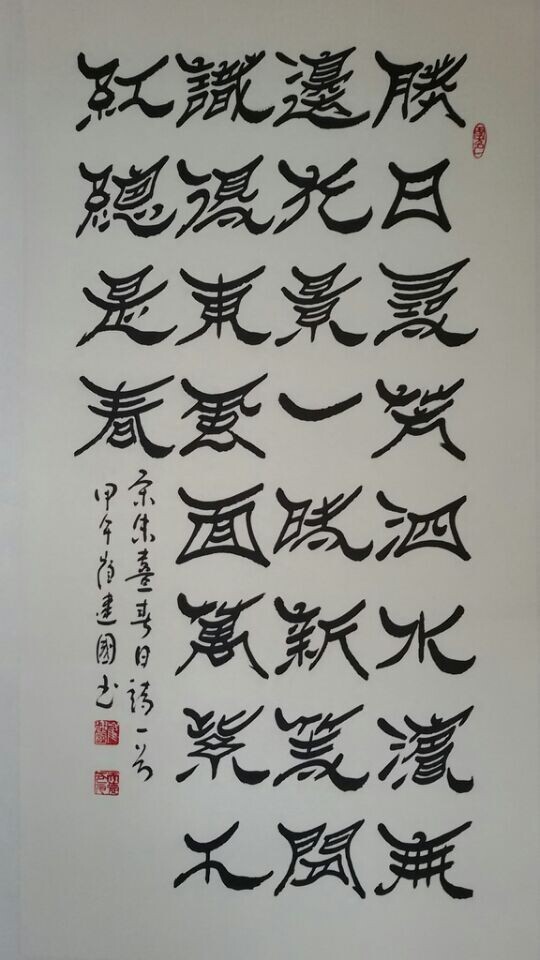 勝日尋芳泗水濱無
邊光景一時新等閒
識得東風面萬紫千
紅總是春
宋朱熹春日詩一首
甲午崔建國书